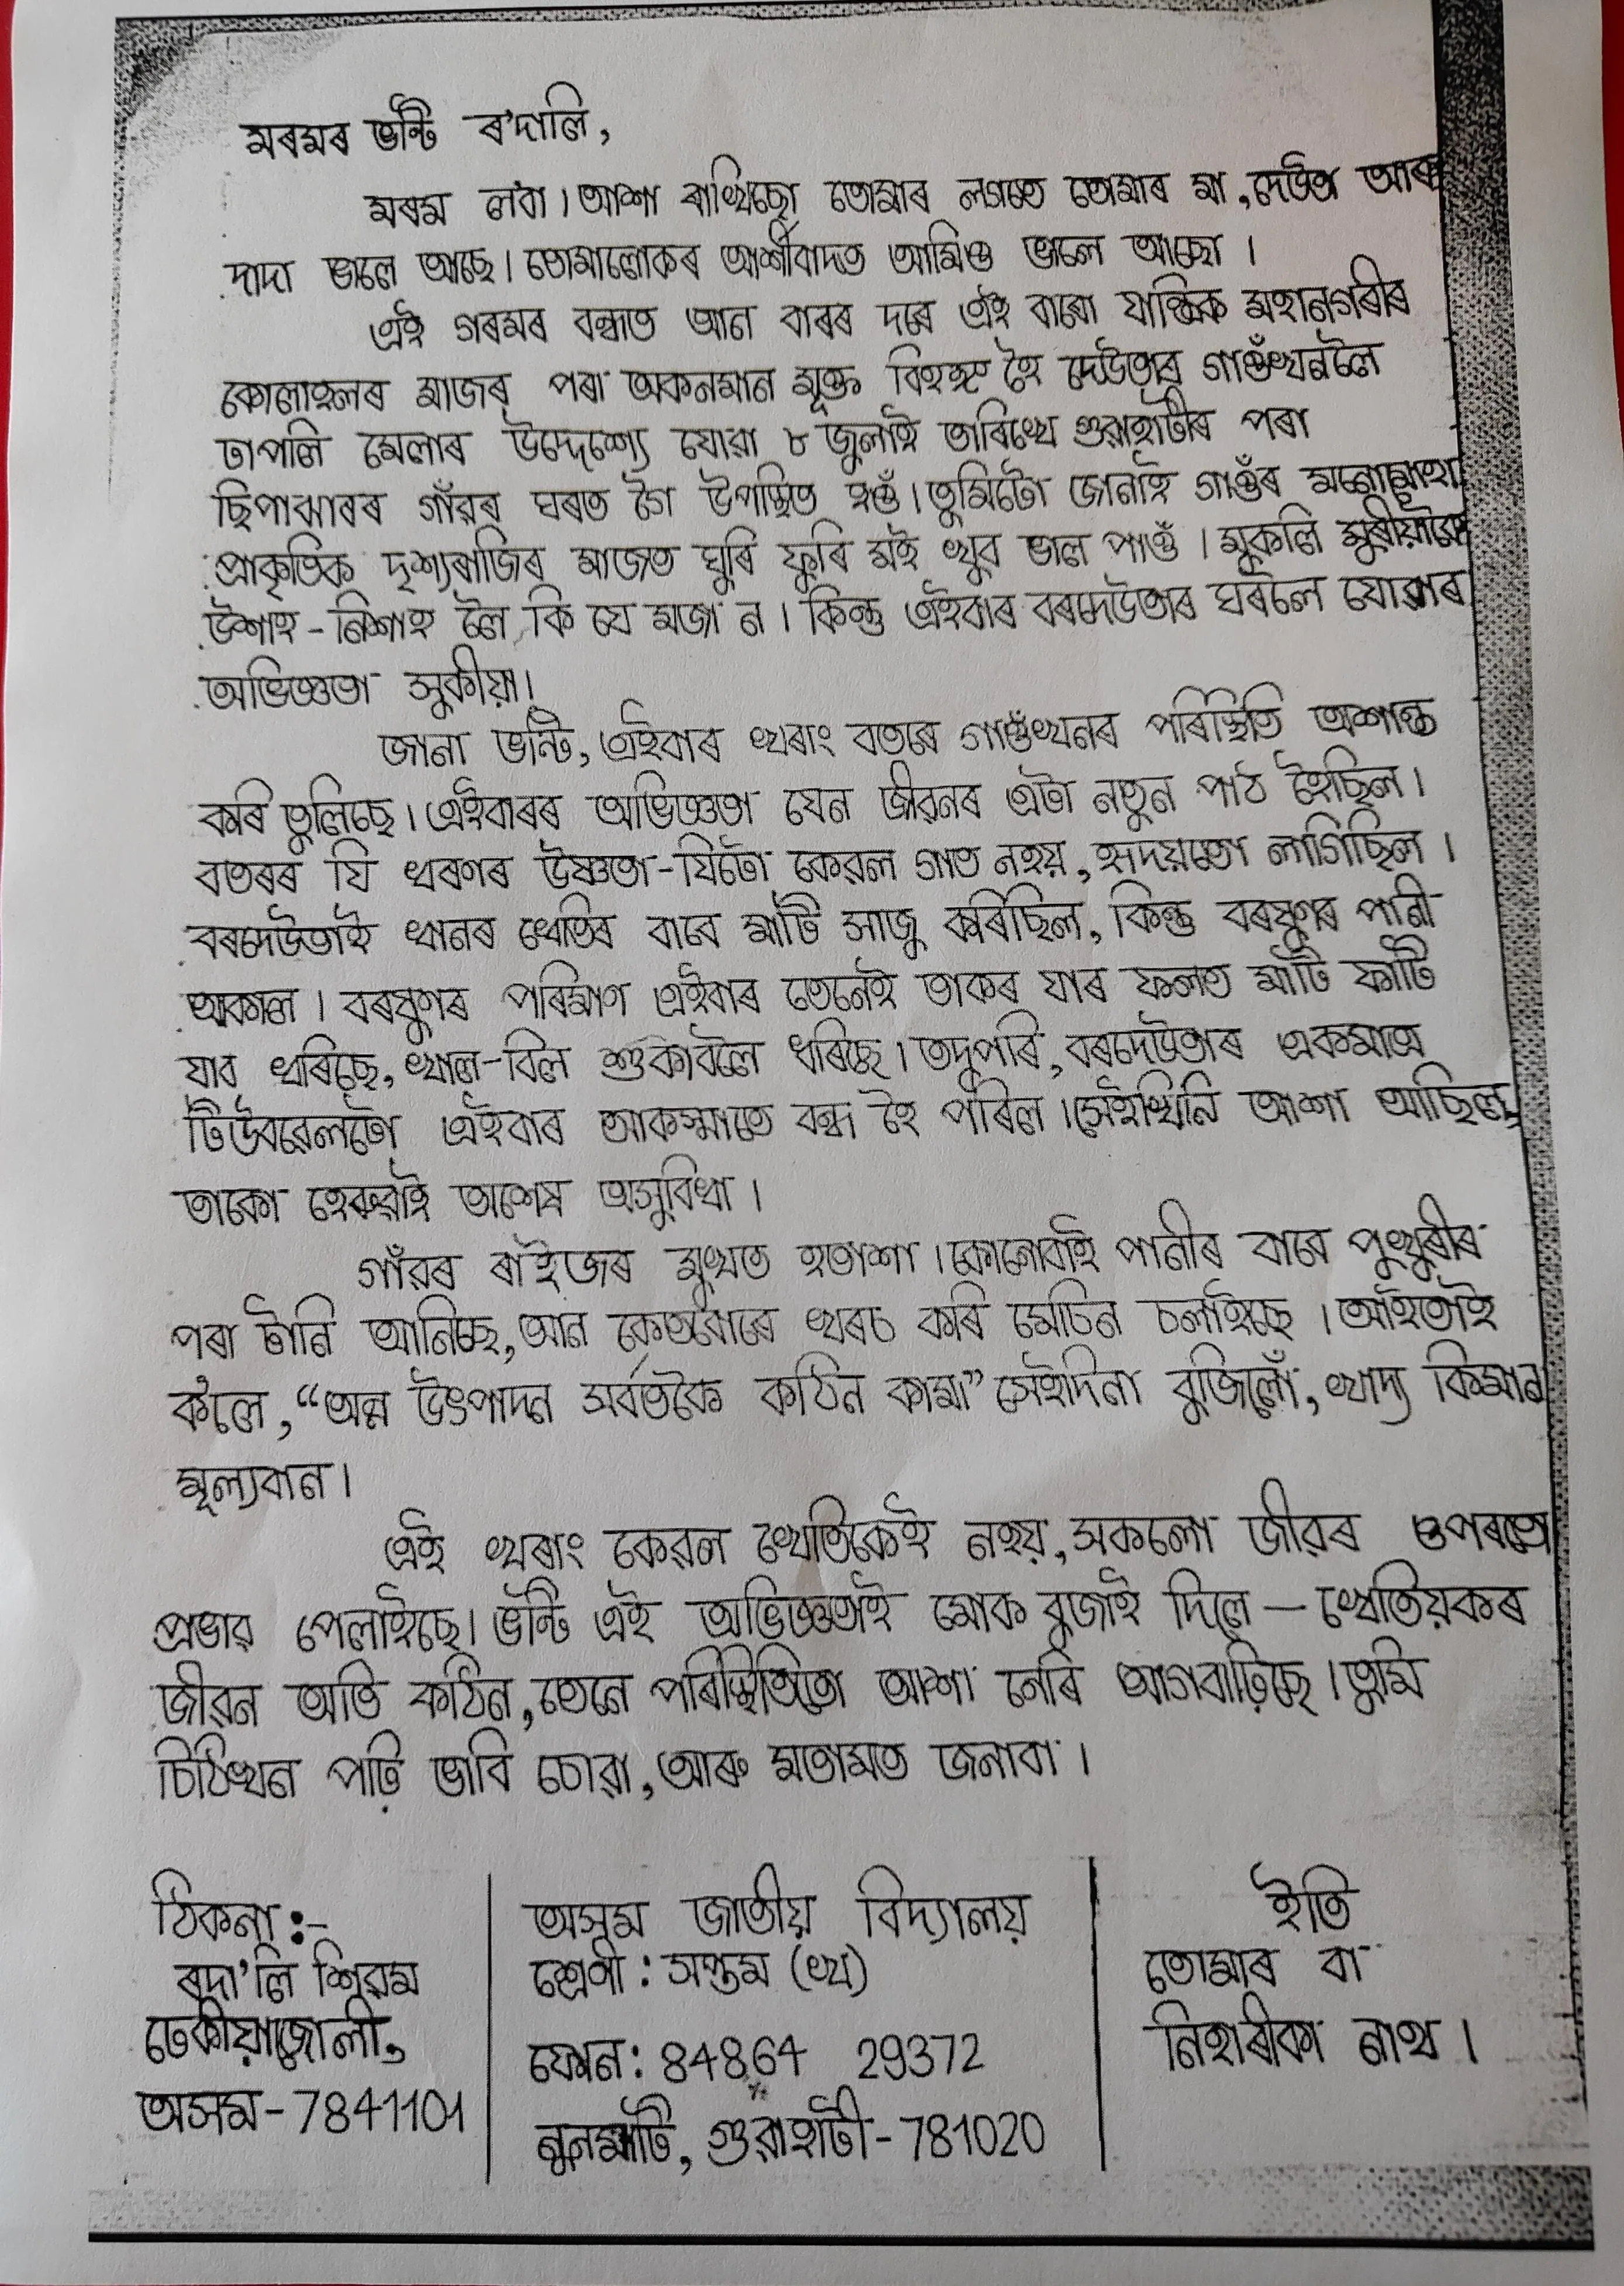 মৰমৰ ভন্টি ৰ'দালি,
মৰম ল'বা। আশা ৰাখিছো তোমাৰ লগতে তোমাৰ মা, দেউতা আৰু
দাদা ভালে আছে। তোমালোকৰ আৰ্শীবাদত আমিও ভালে আছো।
এই গৰমৰ বন্ধত আন বাৰৰ দৰে এই বাৰো যান্ত্ৰিক মহানগৰীৰ
কোলাহলৰ মাজৰ পৰা অকনমান মুক্ত বিহঙ্গ হৈ দেউতাৰ গাওঁখনলৈ
ঢাপলি মেলাৰ উদ্দেশ্যে যোৱা ৮ জুলাই তাৰিখে গুৱাহাটীৰ পৰা
ছিপাঝাৰৰ গাঁৱৰ ঘৰত গৈ উপস্থিত হওঁ। তুমিটো জানাই গাওঁৰ মনোমোহা
প্ৰাকৃতিক দৃশ্যৰাজিৰ মাজত ঘুৰি ফুৰি মই খুব ভাল পাওঁ। মুকলি মুৰীয়াকৈ
উশাহ-নিশাহ লৈ কি যে মজা ন। কিন্তু এইবাৰ বৰদেউতাৰ ঘৰলৈ যোৱাৰ
অভিজ্ঞতা সুকীয়া।
জানা ভন্টি, এইবাৰ খৰাং বতৰে গাওঁখনৰ পৰিস্থিতি অশান্ত
কৰি তুলিছে। এইবাৰৰ অভিজ্ঞতা যেন জীৱনৰ এটা নতুন পাঠ হৈছিল।
বতৰৰ যি খৰাণৰ উষ্ণতা-যিটো কেৱল গাত নহয়, হৃদয়তো লাগিছিল।
বৰদেউতাই ধানৰ খেতিৰ বাবে মাটি সাজু কৰিছিল, কিন্তু বৰষুণৰ পানী
আকাল। বৰষুণৰ পৰিমাণ এইবাৰ তেনেই তাকৰ যাৰ ফলত মাটি ফাটি
যাব ধৰিছে, খাল-বিল শুকাবলৈ ধৰিছে। তদুপৰি, বৰদেউতাৰ একমাত্ৰ
টিউবৱেলটো এইবাৰ আকস্মাতে বন্ধ হৈ পৰিল। সেইখিনি আশা আছিল,
তাকো হেৰুৱাই অশেষ অসুবিধা।
গাঁৱৰ ৰাইজৰ মুখত হতাশা। কোনোবাই পানীৰ বাবে পুখুৰীৰ
পৰা টানি আনিছে, আন কেতবোৰে খৰচ কৰি মেচিন চলাইছে। আইতাই
ক'লে, “অন্ন উৎপাদন সৰ্বতকৈ কঠিন কাম।” সেইদিনা বুজিলোঁ, খাদ্য কিমান
মূল্যবান।
এই খৰাং কেৱল খেতিকেই নহয়, সকলো জীৱৰ ওপৰতে
প্ৰভাৱ পেলাইছে। ভন্টি এই অভিজ্ঞতাই মোক বুজাই দিলে — খেতিয়কৰ
জীৱন অতি কঠিন, তেনে পৰিস্থিতিতো আশা নেৰি আগবাঢ়িছে। তুমি
চিঠিখন পঢ়ি ভাবি চোৱা, আৰু মতামত জনাবা।
ঠিকনা :-
ৰদা'লি শিৱম
ঢেকীয়াজোলী,
অসম - 7841101
অসম জাতীয় বিদ্যালয়
শ্ৰেণী : সপ্তম (খ)
ফোন : 84864 29372
নুনমাটি, গুৱাহাটী - 781020
ইতি
তোমাৰ বা
নিহাৰীকা নাথ।